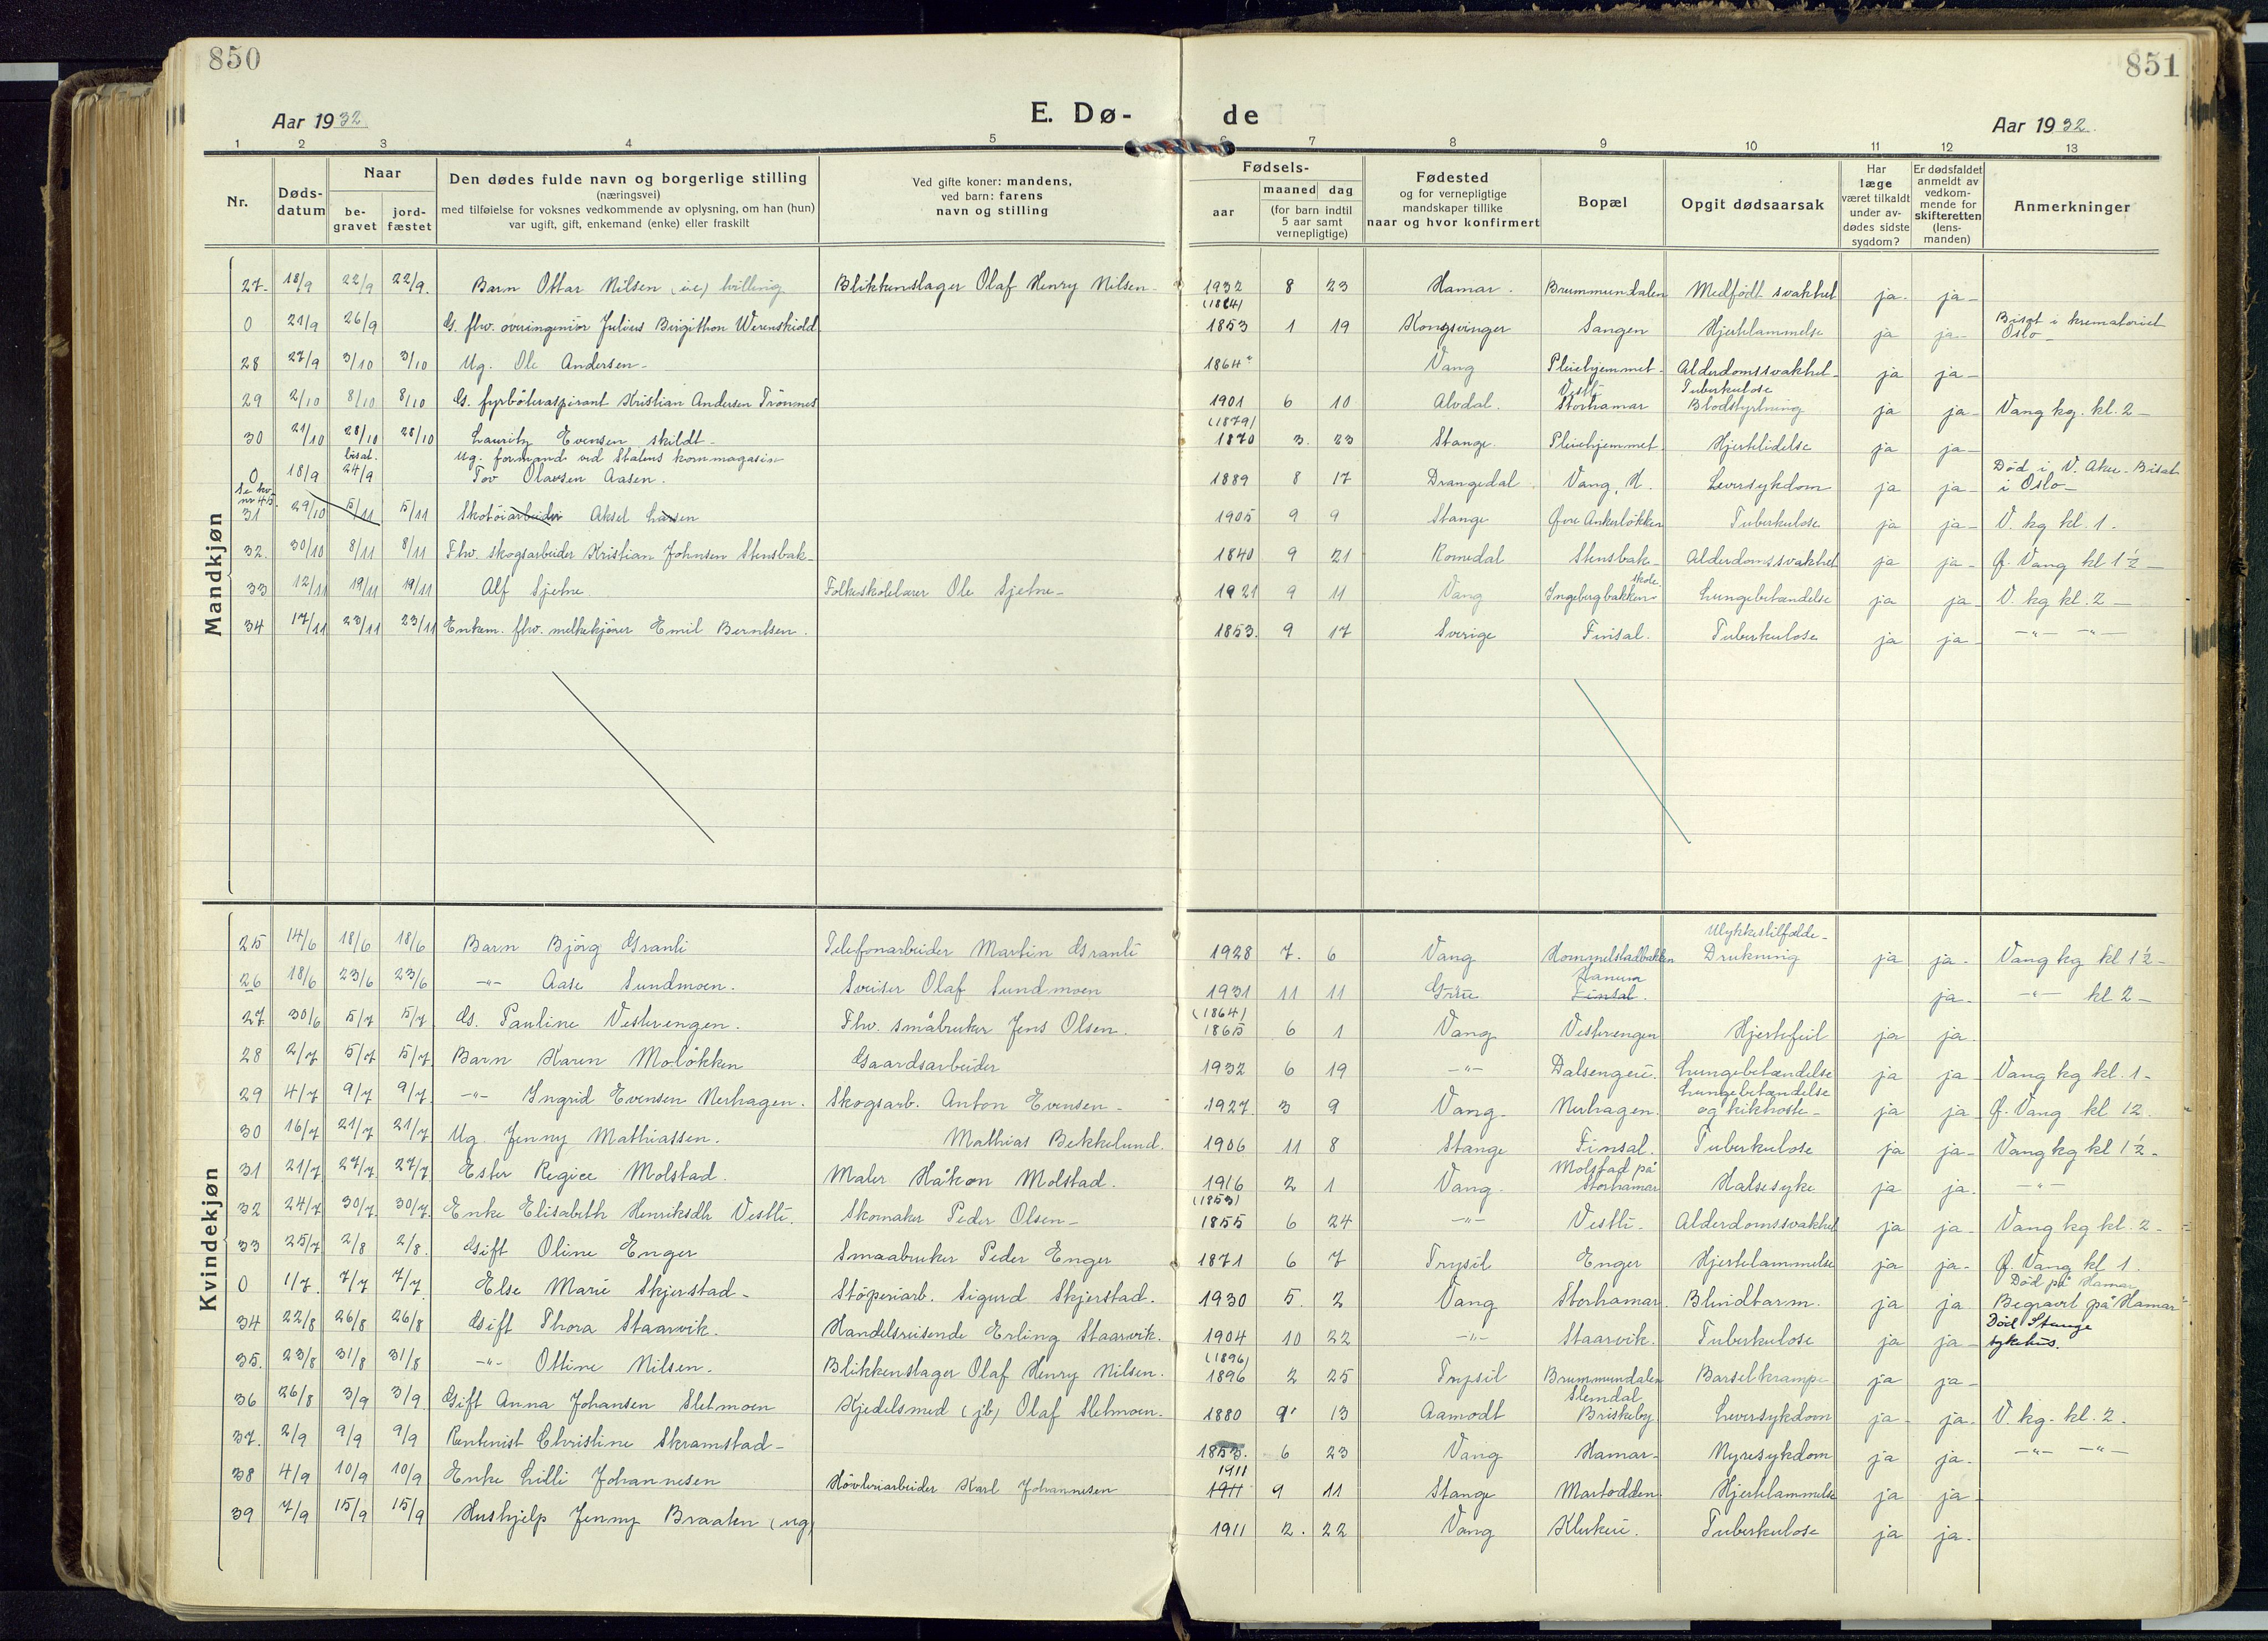 850
851
Aar 1932
E. Dø-
de
Aar 1932.
1 2 3 4 5 6 7 8 9 10 11 12 13
Nr.
Døds-
datum
Naar
be-
gravet
jord-
fæstet
Den dødes fulde navn og borgerlige stilling
(næringsvei)
med tilføielse for voksnes vedkommende av oplysning, om han (hun)
var ugift, gift, enkemand (enke) eller fraskilt
Ved gifte koner: mandens,
ved barn: farens
navn og stilling
Fødsels-
aar
maaned dag
(for barn indtil
5 aar samt
vernepligtige)
Fødested
og for vernepligtige
mandskaper tillike
naar og hvor konfirmert
Bopæl
Opgit dødsaarsak
Har
læge
været tilkaldt
under av-
dødes sidste
sygdom?
Er dødsfaldet
anmeldt av
vedkom-
mende for
skifteretten
(lens-
manden)
Anmerkninger
Mandkjøn
27. 18/9 22/9 22/9. Barn Ottar Nilsen (ue) tvilling Blikkenslager Olaf Henry Nilsen. 1932 8 23 Hamar. Brummundalen Medfødt svakhet ja. ja-
0 21/9 26/9 G. fhv. overingeniör Julius Birgithon Werenskiold (1864) 1853 1 19 Kongsvinger Sangen Hjertelammelse ja ja- Bisat i krematoriet Oslo-
28 27/9 3/10 3/10 Ug. Ole Andersen- 1864 Vang Pleiehjemmet. Alderdomssvakhet- ja ja-
29 2/10 8/10 8/10 G. fyrböteraspirant Kristian Andersen Trönnes 1901 6 10 Alvdal. Vestli Storhamar Tuberkulose Blodstyrtning ja ja- Vang kg. kl. 2-
30 21/10 28/10 28/10 Lauritz Evensen, skildt- (1879) 1870 3. 23 Stange. Pleiehjemmet. Hjertelidelse ja ja-
0 18/9 bisat. 24/9 Ug. formand ved Statens kornmagasin Tov Olavsen Aasen. 1889 8 17 Drangedal. Vang, H. Leversykdom ja ja- Död i V. Aker. Bisat i Oslo-
31 29/10 5/11 5/11 Skotöiarbeider Aksel Larsen 1905 9 9 Stange Øvre Ankerløkken Tuberkulose ja ja- V. kg kl. 1.
32. 30/10 8/11 8/11 Fhv. skogsarbeider Kristian Johnsen Stensbak- 1840 9 21 Romedal Stensbak- Alderdomssvakhet ja ja- Ø. Vang kl 1½-
33 12/11 19/11 19/11 Alf Sjetne Folkeskolelærer Ole Sjetne- 1921 9 11 Vang Ingebergbakken skole Lungebetændelse ja ja- V. kg kl. 2-
34 17/11 23/11 23/11 Enkem. fhv. melkekjører Emil Berntsen. 1853. 9 17 Sverige Finsal. Tuberkulose ja ja- -"- -"-
Kvindekjøn
25 14/6 18/6 18/6 Barn Björg Granli Telefonarbeider Martin Granli 1928 7. 6 Vang Hommelstadbakken Ulykkestilfælde- Drukning ja ja- Vang kg kl 1½-
26 18/6 23/6 23/6 -"- Aase Sundmoen. Sveiser Olaf Sundmoen 1931 11 11 Grue Hanum Finsal. ja- -"- kl 2-
27. 30/6 5/7 5/7 G. Pauline Vesterengen. Fhv. småbruker Jens Olsen. (1864) 1865 6 1 Vang Vesterengen Hjertefeil ja ja.
28 2/7 5/7 5/7 Barn Karen Moløkken Gaardsarbeider 1932 6 19 -"- Dalsengeie. Lungebetændelse ja ja- Vang kg kl. 1-
29 4/7 9/7 9/7 -"- Ingrid Evensen Nerhagen. Skogsarb. Anton Evensen- 1927. 3 9 Vang. Nerhagen. Lungebetændelse og kikhoste- ja ja- Ø. Vang kl 12.
30 16/7 21/7 21/7 Ug. Jenny Mathiassen. Mathias Bekkelund. 1906 11 8 Stange Finsal. Tuberkulose ja ja- Vang kg kl 1½-
31 21/7 27/7 27/7 Ester Regice Molstad. Maler Håkon Molstad. 1916 2 1 Vang. Molstad på Storhamar Halsesyke ja ja. -"-
32 24/7 30/7 30/7. Enke Elisabeth Henriksdtr Vestli. Skomaker Peder Olsen- (1853) 1855 6 24 -"- Vestli- Alderdomssvakhet ja ja- Vang kg kl. 2-
33 25/7 2/8 2/8. Gift Oline Enger Smaabruker Peder Enger 1871 6 7 Trysil Enger Hjertelammelse ja ja- Ø. Vang kl 1.
0 1/7. 7/7 7/7. Else Marie Skjerstad- Stöperiarb. Sigurd Skjerstad. 1930 5. 2 Vang Storhamar. Blindtarm. ja ja Död på Hamar Begravet på Hamar
34 22/8 26/8 26/8 Gift Thora Staarvik. Handelsreisende Erling Staarvik. 1904 10 22 -"- Staarvik. Tuberkulose ja ja- Död Stange sykehus.
35. 23/8 31/8 31/8 -"- Ottine Nilsen. Blikkenslager Olaf Henry Nilsen. (1896) 1896 2 25 Trysil Brummundalen Barselkrampe ja ja-
36 26/8 3/9 3/9. Gift Anna Johansen Sletmoen Kjedelsmed (jb) Olaf Sletmoen. 1880 9 13 Aamodt Slemdal Briskeby Leversykdom ja- ja- V. kg. kl. 2.
37. 2/9 9/9 9/9 Rentenist Christine Skramstad- 1853. 6 23 Vang Hamar- Nyresykdom ja ja- -"- -"-
38 4/9 10/9 10/9 Enke Lilli Johannesen Høvleriarbeider Karl Johannesen 1911 1911 9 11 Stange Martodden Hjertelammelse ja ja-
39 7/9 15/9 15/9 Hushjelp Jenny Braaten (ug) 1911 2. 22 Vang Klukeie. Tuberkulose ja ja-